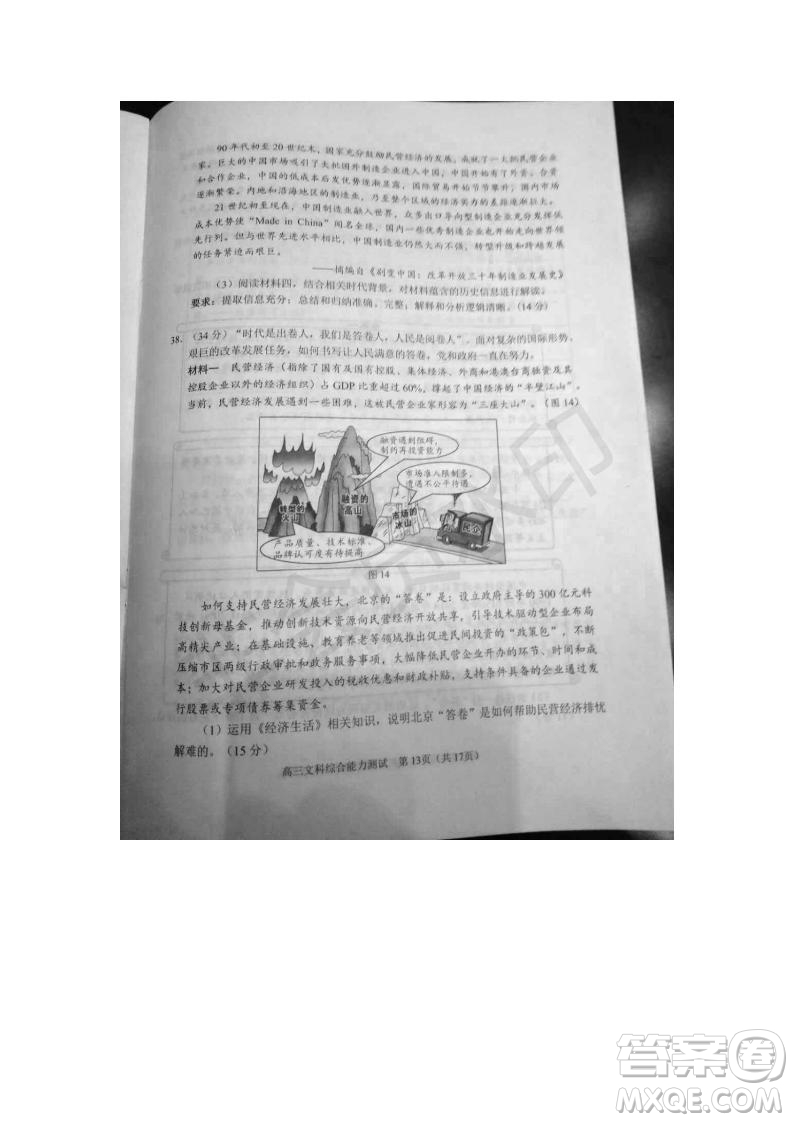 90 年代初至 20 世纪末，国家充分鼓励民营经济的发展，成就了一大批民营企业
家。巨大的中国市场吸引了大批国外制造企业进入中国，中国企业也有了外资、合资
和合作企业。中国的低成本后发优势逐渐显露，国际贸易开始节节攀升；国内市场
逐渐繁荣。内地和沿海地区的制造业，乃至整个区域的经济实力的差距逐渐拉大。
21 世纪初至现在，中国制造业融入世界，众多出口导向型制造企业充分发挥
成本优势使“Made in China”闻名全球，中国的优秀制造业企业也开始走向世界
先行列。但与世界先进水平相比，中国制造业大而不强，转型升级和跨越发展
的任务紧迫而艰巨。
——摘编自《剧变中国：改革开放三十年制造业发展史》
（3）阅读材料四，结合相关时代背景，对材料蕴含的历史信息进行解读。
要求：提取信息充分；总结和归纳准确、完整；解释和分析逻辑清晰。（14 分）
38.（34 分）“时代是出卷人，我们是答卷人，人民是阅卷人”。面对复杂的国际形势、
艰巨的改革发展任务，如何书写让人民满意的答卷，党和政府一直在努力。
材料一 民营经济（指除了国有及国有控股、集体经济、外商和港澳台商独资及其
控股企业以外的经济组织）占 GDP 比重超过 60%，撑起了中国经济的“半壁江山”。
当前，民营经济发展遇到一些困难，这被民营企业家形容为“三座大山”。（图 14）
融资遇到阻碍，
制约再投资能力
市场准入限制多，
遭遇不公平待遇
转型的
火山
融资的
高山
市场的
冰山
民企
产品质量、技术标准、
品牌认可度有待提高
图 14
如何支持民营经济发展壮大，北京的“答卷”是：设立政府主导的 300 亿元科
技创新母基金，推动创新技术资源向民营经济开放共享，引导技术驱动型企业布局
高精尖产业；在基础设施、教育养老等领域推出促进民间投资的“政策包”，不断
压缩市区两级行政审批和政务服务事项，大幅降低民营企业开办的环节、时间、成
本；加大对民营企业研发投入的税收优惠和财政补贴，支持条件具备的企业发
行股票或专项债券筹集资金。
（1）运用《经济生活》相关知识，说明北京“答卷”是如何帮助民营经济排忧
解难的。（15 分）
高三文科综合能力测试 第 13页（共 17页）
答案卷
MXQE.COM